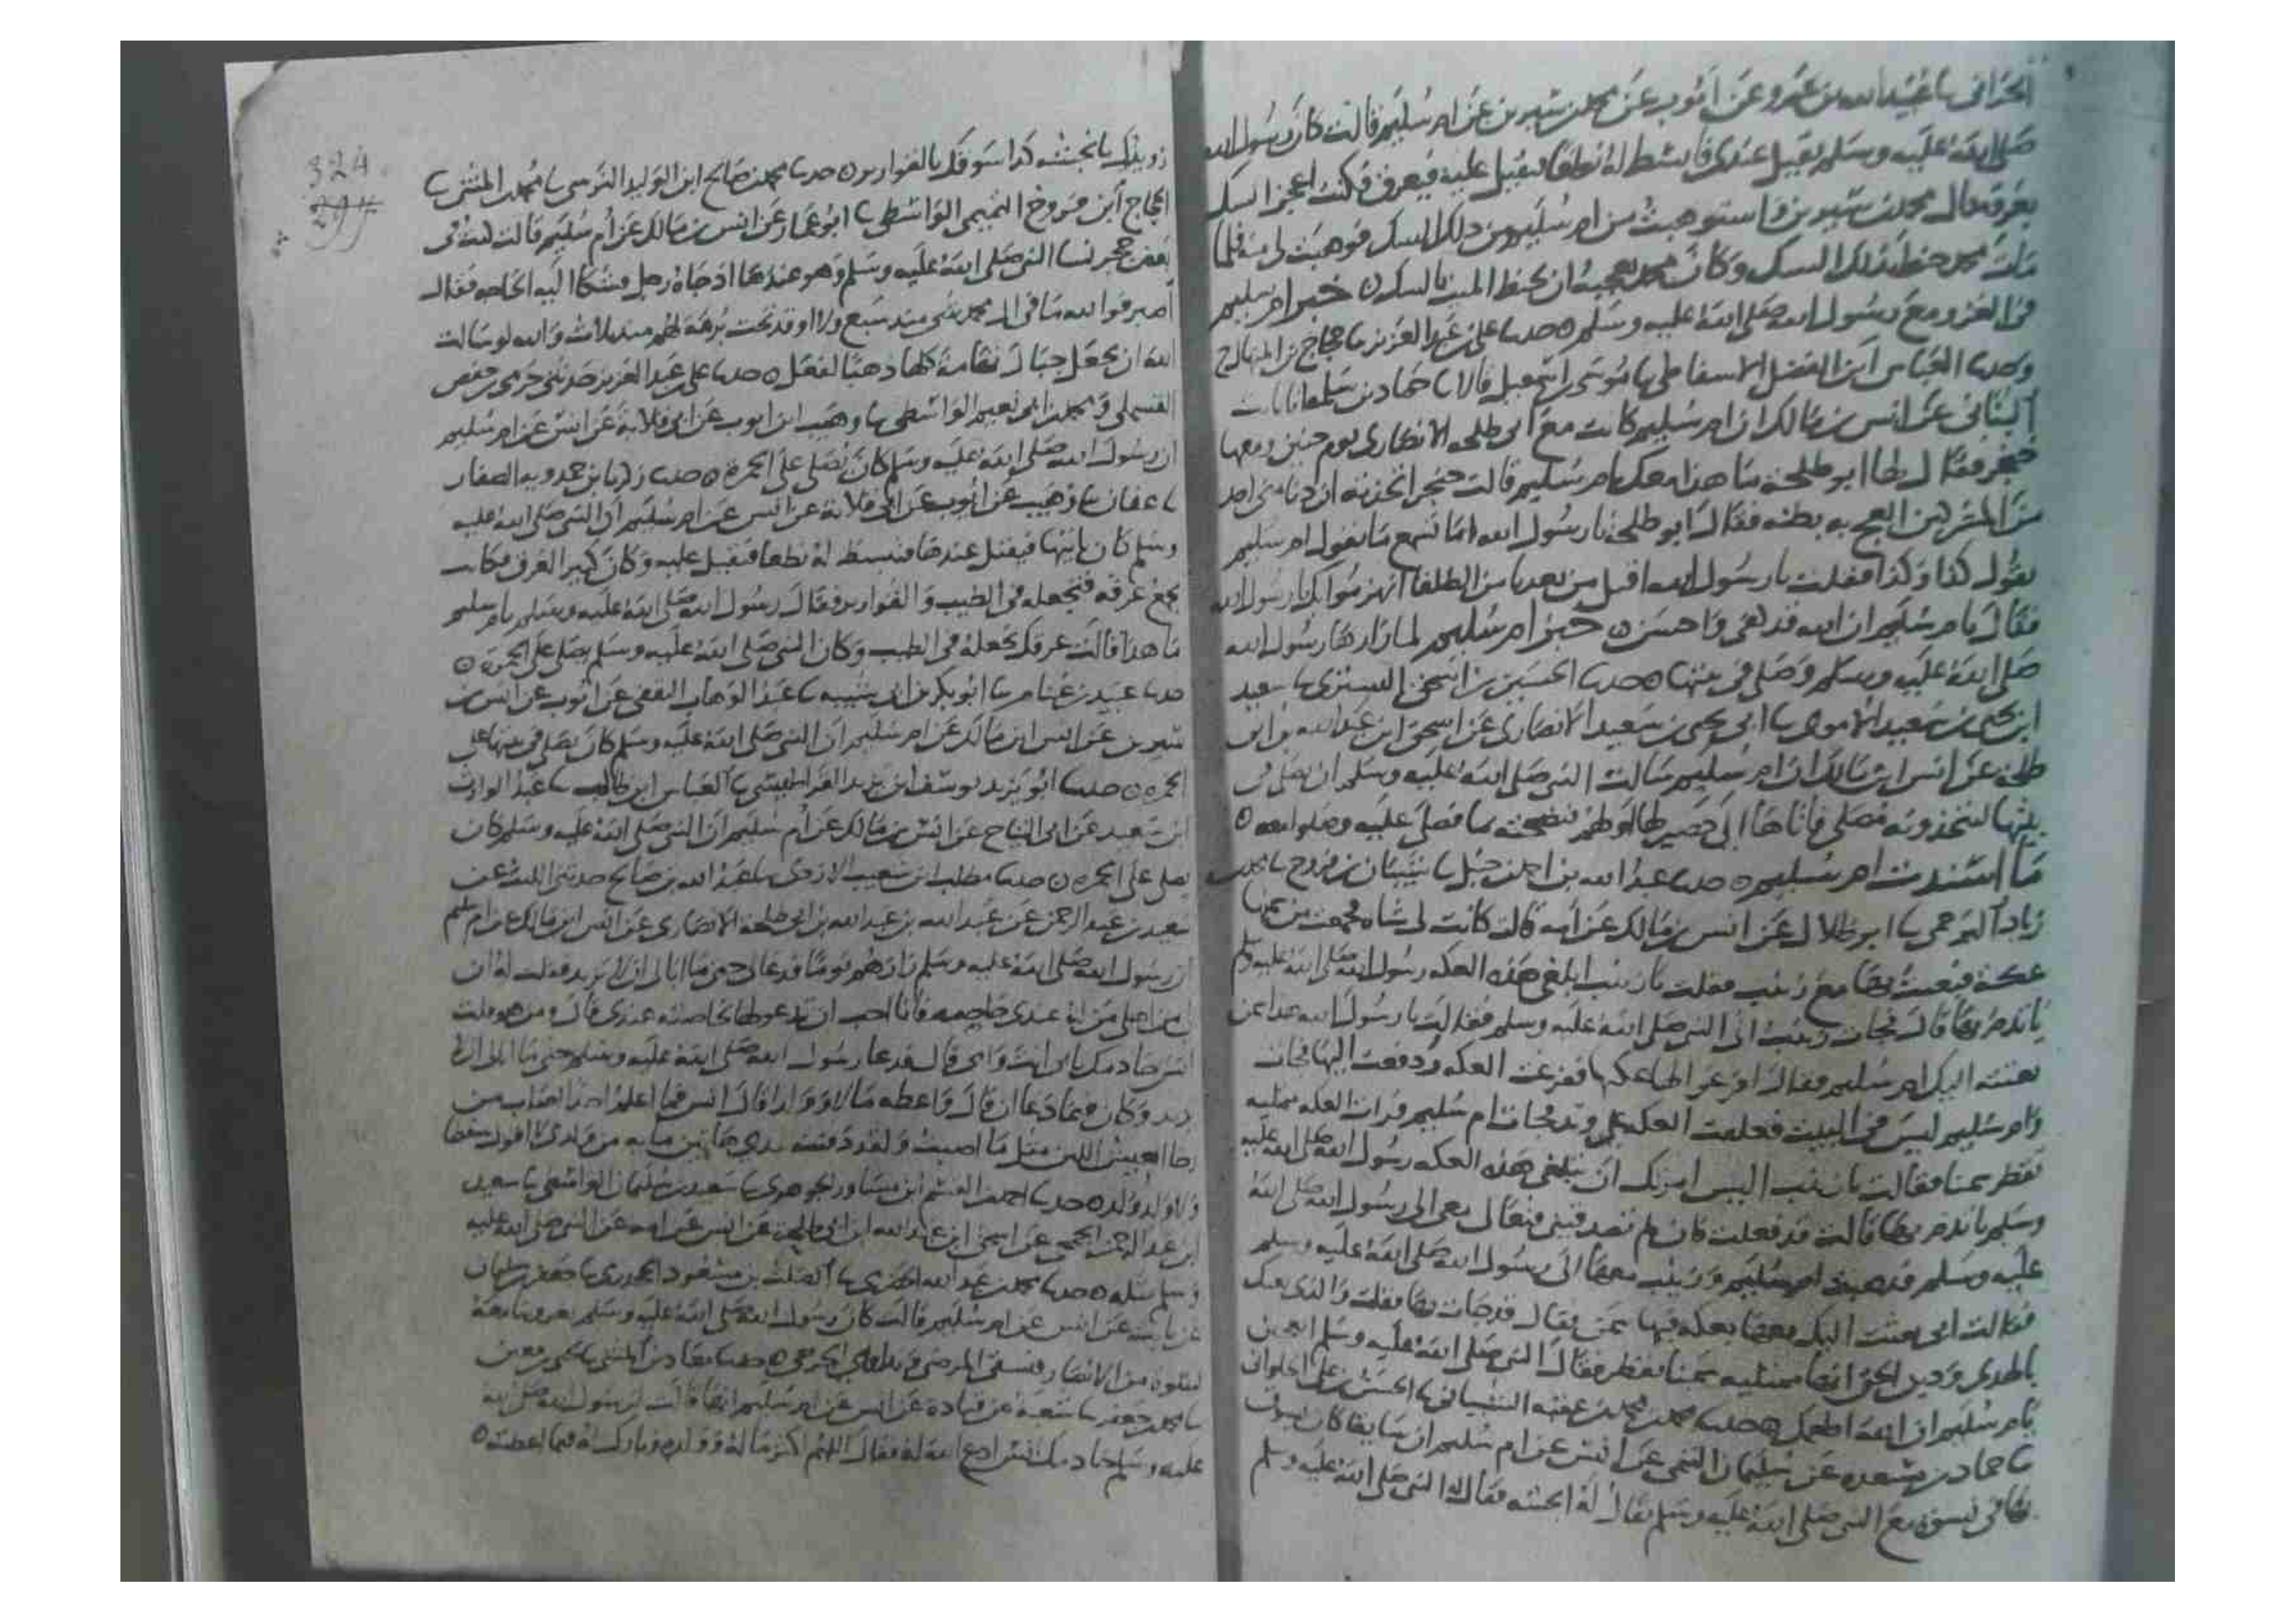 الحراني ثنا عبيد الله بن عمرو عن ايوب عن محمد بن سيرين عن ام سليم قالت كان رسول الله
صلى الله عليه وسلم يقيل عندي فابسط له نطعا فيقيل عليه فيعرق فكنت اعجن السك
بعرقه قال محمد بن سيرين فاستوهبت من ام سليم من ذلك السك فوهبت لي منه فلما
مات محمد حنط بذلك السك وكان محمد يعجبه ان يحنط الميت بالسك خبر ام سليم
في الغزو مع رسول الله صلى الله عليه وسلم حدثنا علي بن عبد العزيز ثنا حجاج بن المنهال ح
وحدثنا العباس ابن الفضل الاسفاطي ثنا موسى بن اسمعيل قالا ثنا حماد بن سلمة انا ثابت
البناني عن انس بن مالك ان ام سليم كانت مع ابي طلحة الانصاري يوم حنين ومعها
خنجر فقال لها ابو طلحة ما هذا معك يا ام سليم قالت خنجر اتخذته ان دنا مني احد
من المشركين ابعج به بطنه فقال ابو طلحة يا رسول الله اما تسمع ما تقول ام سليم
تقول كذا وكذا فقلت يا رسول الله اقتل من بعدنا من الطلقا انهزموا بك يا رسول الله
فقال يا ام سليم ان الله قد كفى واحسن خبر ام سليم لما زارها رسول الله
صلى الله عليه وسلم وصلى في بيتها حدثنا الحسين بن اسحق التستري ثنا سعيد
ابن يحيى بن سعيد الاموي ثنا ابي يحيى بن سعيد الانصاري عن اسحق ابن عبد الله بن ابي
طلحة عن انس ابن مالك ان ام سليم سالت النبي صلى الله عليه وسلم ان يصلي في
بيتها لتتخذونه مصلى فاتاها الى حصير لها لهم فنضحته بما فصلى عليه وصلوا معه
ما اسندت ام سليم حدثنا عبد الله بن احمد بن حنبل ثنا شيبان بن فروخ ثنا محمد بن
زياد البرجمي ثنا ابو ظلال عن انس بن مالك عن امه قالت كانت لي شاة فجمعت من سمنها
عكة فبعثت بها مع زينب فقلت يا زينب ابلغي هذه العكة رسول الله صلى الله عليه وسلم
ياتدم بها قال فجات زينب الى النبي صلى الله عليه وسلم فقالت يا رسول الله هذا سمن
بعثته اليك ام سليم فقال افرغوا لها عكتها ففرغت العكة ودفعت اليها فجات
وام سليم ليس في البيت فعلقت العكة على وتد فجات ام سليم فرات العكة ممتلية
تقطر سمنا فقالت يا زينب اليس امرتك ان تبلغي هذه العكة رسول الله صلى الله عليه
وسلم ياتدم بها قالت قد فعلت فان لم تصدقيني فتعالي معي الى رسول الله صلى الله
عليه وسلم فذهبت ام سليم وزينب معها الى رسول الله صلى الله عليه وسلم
فقالت اني بعثت اليك معها بعكة فيها سمن فقال قد جات بها فقلت والذي بعثك
بالهدى ودين الحق انها ممتلية سمنا تقطر فقال النبي صلى الله عليه وسلم اتعجبين
يا ام سليم ان الله اطعمك حدثنا محمد بن محمد بن عقبة الشيباني ثنا الحسن بن علي الحلواني
ثنا حماد بن مسعدة عن سليمان التيمي عن انس عن ام سليم ان سايقا كان يسوق
بها في نسوة مع النبي صلى الله عليه وسلم يقال له انجشة فقال له النبي صلى الله عليه وسلم
324
رويدك يا انجشة كذا سوقك بالقوارير حدثنا محمد بن صالح ابن الوليد النرسي ثنا محمد بن المثنى ثنا
الحجاج ابن فروخ التميمي الواسطي ثنا ابو عمار عن انس بن مالك عن ام سليم قالت في
بعض حجر نسا النبي صلى الله عليه وسلم وهو عندها اذ جاه رجل فشكا اليه الحاجة فقال
اصبر فوالله ما في ال محمد شي منذ سبع ولا اوقد تحت برمة لهم منذ ثلاث والله لو سالت
الله ان يجعل جبال تهامة كلها ذهبا لفعل حدثنا علي بن عبد العزيز حدثني حرمي بن حفص
القسملي ومحمد بن ابي نعيم الواسطي ثنا وهيب ابن ايوب عن ابي قلابة عن انس عن ام سليم
ان رسول الله صلى الله عليه وسلم كان يصلي على الخمرة حدثنا زكريا بن حمدويه الصفار
ثنا عفان ثنا وهيب عن ايوب عن ابي قلابة عن انس عن ام سليم ان النبي صلى الله عليه
وسلم كان ياتيها فيقيل عندها فتبسط له نطعا فيقيل عليه وكان كثير العرق فكانت
تجمع عرقه فتجعله في الطيب والقوارير فقال رسول الله صلى الله عليه وسلم يا ام سليم
ما هذا قالت عرقك نجعله في الطيب وكان النبي صلى الله عليه وسلم يصلي على الخمرة
حدثنا عبيد بن غنام ثنا ابو بكر بن ابي شيبة ثنا عبد الوهاب الثقفي عن ايوب عن انس بن
سيرين عن انس ابن مالك عن ام سليم ان النبي صلى الله عليه وسلم كان يصلي في بيتها على
الخمرة حدثنا ابو يزيد يوسف ابن يزيد القراطيسي ثنا العباس ابن طالب ثنا عبد الوارث
ابن سعيد عن ابي التياح عن انس بن مالك عن ام سليم ان النبي صلى الله عليه وسلم كان
يصلي على الخمرة حدثنا مطلب ابن شعيب الازدي ثنا عبد الله بن صالح حدثني الليث عن
سعيد بن عبد الرحمن عن عبد الله بن عبد الله بن ابي طلحة الانصاري عن انس ابن مالك عن ام سليم
ان رسول الله صلى الله عليه وسلم زارهم يوما فدعا لي حتى ما ابالي ان لا يزيد فقلت له ان
ان من اهلي من له عندي خاصة فانا احب ان تدعو لها خاصته عندي قال ومن هو قلت
انس خادمك بابي انت وامي قال فدعا رسول الله صلى الله عليه وسلم حتى ما ابالي ان لا
يزيد وكان فيما دعا ان قال واعطه مالا وولدا قال انس فما اعلم احدا اصاب من
رخا العيش اللين مثل ما اصبت ولقد دفنت بيدي هاتين مايه من ولدي لا اقول سقطا
ولا ولد ولد حدثنا احمد بن القسم ابن مساور الجوهري ثنا سعيد بن سليمان الواسطي ثنا سعيد
ابن عبد الرحمن الجمحي عن اسحق ابن عبد الله ابن ابي طلحة عن انس عن امه عن النبي صلى الله عليه
وسلم مثله حدثنا محمد بن عبد الله الحضرمي ثنا الصلت بن مسعود الجحدري ثنا جعفر بن سليمان
عن ثابت عن انس عن ام سليم قالت كان رسول الله صلى الله عليه وسلم يغزو بنا معه
نسوة من الانصار فنسقي المرضى ونداوي الجرحى حدثنا معاذ بن المثنى ثنا يحيى بن معين
ثنا محمد بن جعفر ثنا شعبة عن قتادة عن انس عن ام سليم انها قالت لرسول الله صلى الله
عليه وسلم خادمك انس ادع الله له فقال اللهم اكثر ماله وولده وبارك له فيما اعطيته